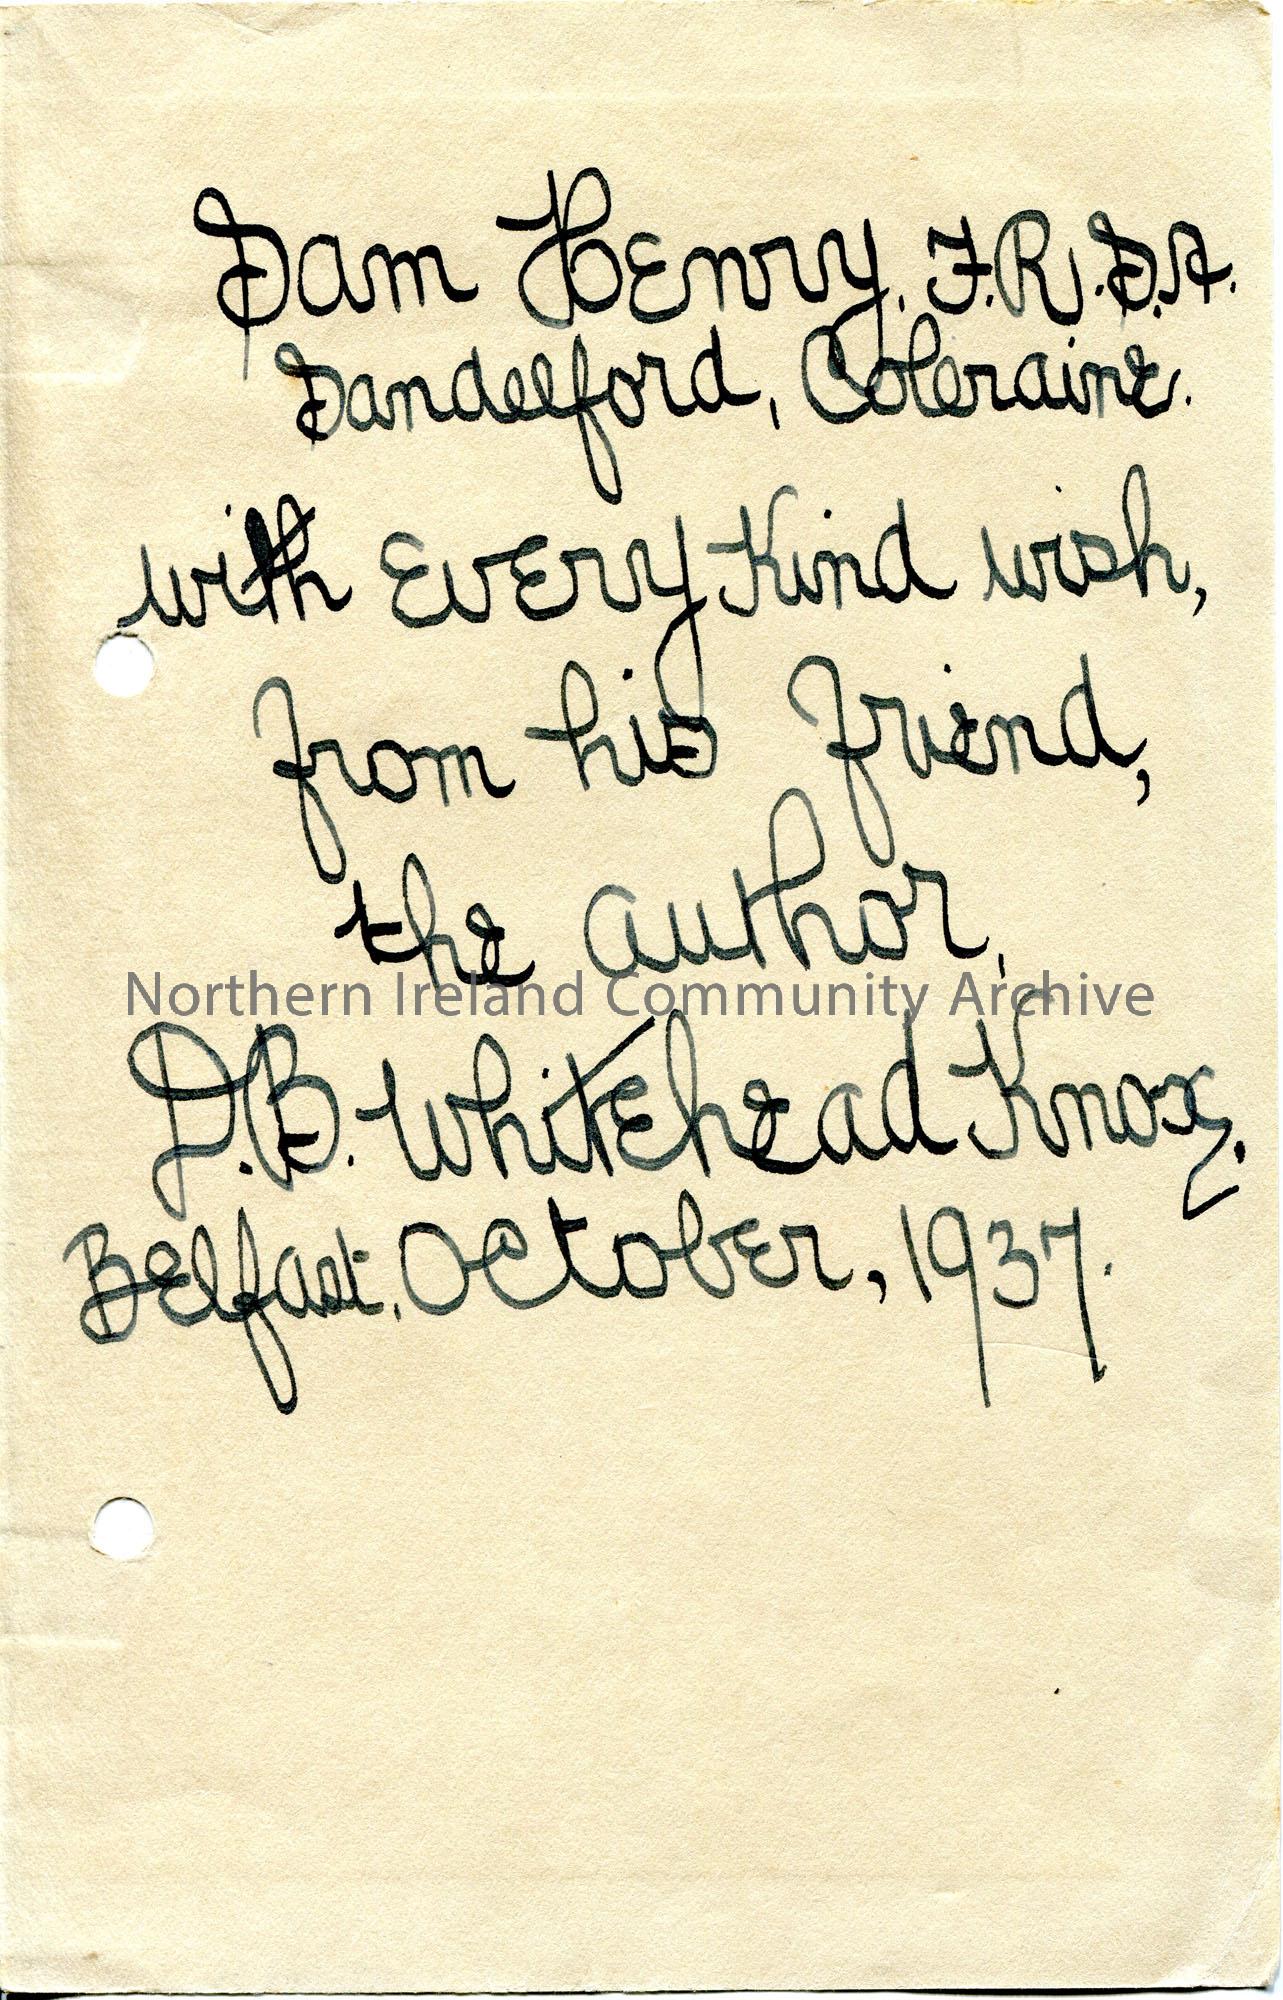 Sam Henry, F.R.S.A.
Sandelford, Coleraine.
with every kind wish,
from his friend,
the author,
Northern Ireland Community Archive
D.B. Whitehead Knox.
Belfast, October, 1937.